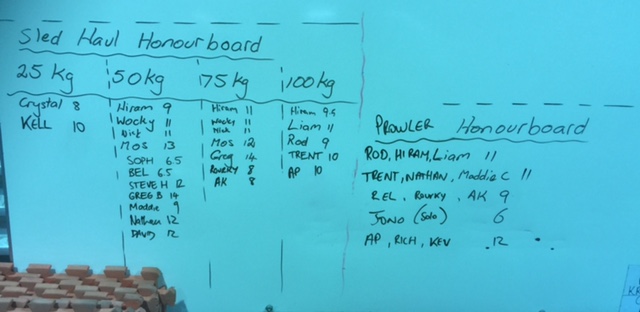 Sled Haul Honourboard
25 kg
Crystal 8
KELL 10
50 kg
Hiram 9
Wocky 11
Dirt 11
Mos 13
SOPH 6.5
BEL 6.5
STEVE H 12
GREG B 14
Maddie 9
Nathan 12
DAVID 12
75 kg
Hiram 11
Wocky 11
Nick 11
Mos 12
Greg 14
Rowky 8
AK 8
100 kg
Hiram 9.5
Liam 11
Rod 9
TRENT 10
AP 10
PROWLER Honourboard
ROD, HIRAM, Liam 11
TRENT, NATHAN, Maddie C 11
BEL, Rowky, AK 9
JONO (Solo) 6
AP, RICH, KEV 12